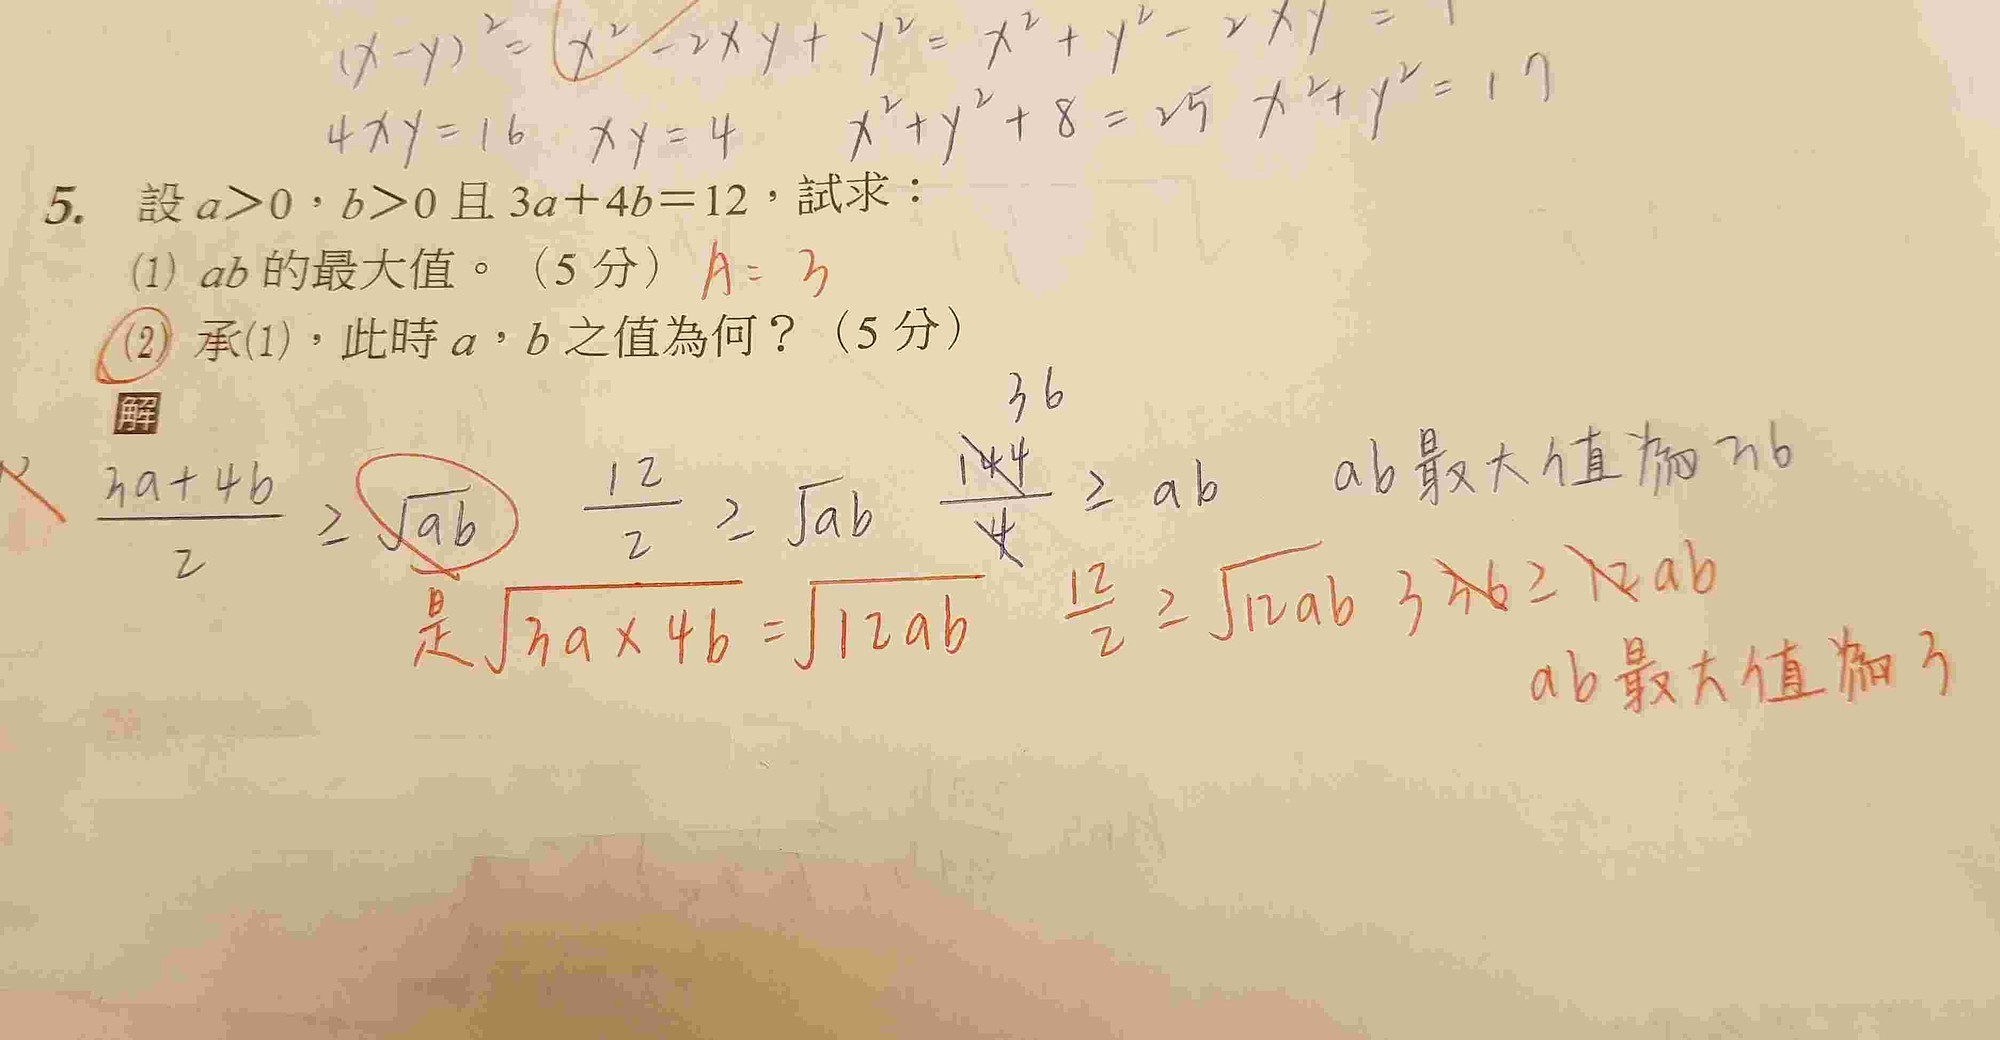 (x-y)² = x² - 2xy + y² = x² + y² - 2xy = 1
4xy = 16 xy = 4 x² + y² + 8 = 25 x² + y² = 17
5. 設 a>0,b>0 且 3a+4b=12,試求:
(1) ab 的最大值。(5 分) A = 3
(2) 承(1),此時 a,b 之值為何?(5 分)
解
36
(3a+4b)/2 ≥ √ab 12/2 ≥ √ab 144/4 ≥ ab ab最大值為36
是√(3a×4b) = √(12ab) 12/2 ≥ √12ab 3 36 ≥ 12ab
ab最大值為3